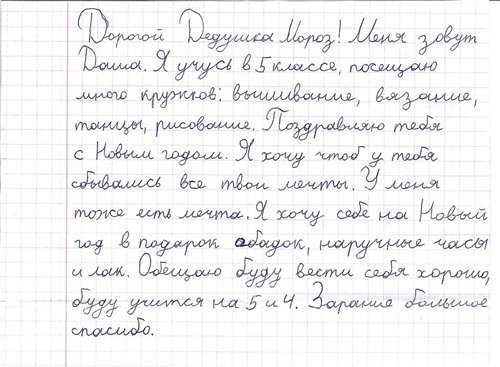 Дорогой Дедушка Мороз! Меня зовут
Даша. Я учусь в 5 классе, посещаю
много кружков: вышивание, вязание,
танцы, рисование. Поздравляю тебя
с Новым годом. Я хочу чтоб у тебя
сбывались все твои мечты. У меня
тоже есть мечта. Я хочу себе на Новый
год в подарок ободок, наручные часы
и лак. Обещаю буду вести себя хорошо,
буду учится на 5 и 4. Зарание большое
спасибо.